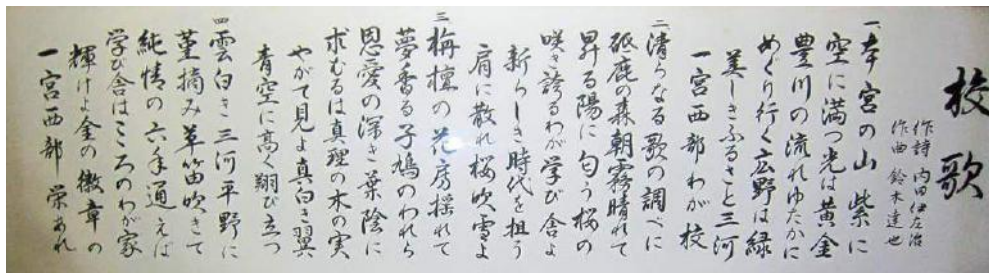 校歌
作詩 内田伊左治
作曲 鈴木達也
一、本宮の山 紫に
空に満つ光は黄金
豊川の流れゆたかに
めぐり行く広野は緑
美しきふるさと三河
一宮西部わが校
二、清らなる歌の調べに
砥鹿の森朝霧晴れて
昇る陽に匂う桜の
咲き誇るわが学び舎よ
新らしき時代を担う
肩に散れ桜吹雪よ
三、栴檀の花房揺れて
夢香る子鳩のわれら
恩愛の深き葉陰に
求むるは真理の木の実
やがて見よ真白き翼
青空に高く翔び立つ
四、雲白き三河平野に
菫摘み草笛吹きて
純情の六年通えば
学び舎はこころのわが家
輝けよ金の徽章の
一宮西部 栄あれ